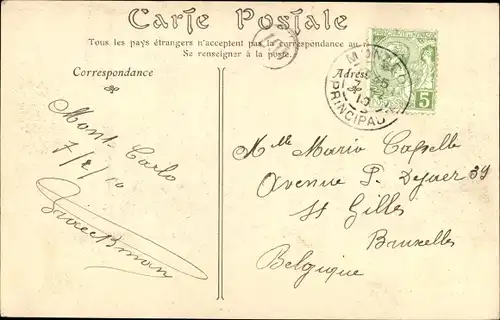 Carte Postale
Tous les pays étrangers n'acceptent pas la correspondance au
Se renseigner à la poste.
Correspondance
Adres
MONACO
PRINCIPAU
5
Monte Carlo
7/2/10
Mlle Maria Capelle
Avenue P. Dejaer 39
St Gilles
Bruxelles
Belgique